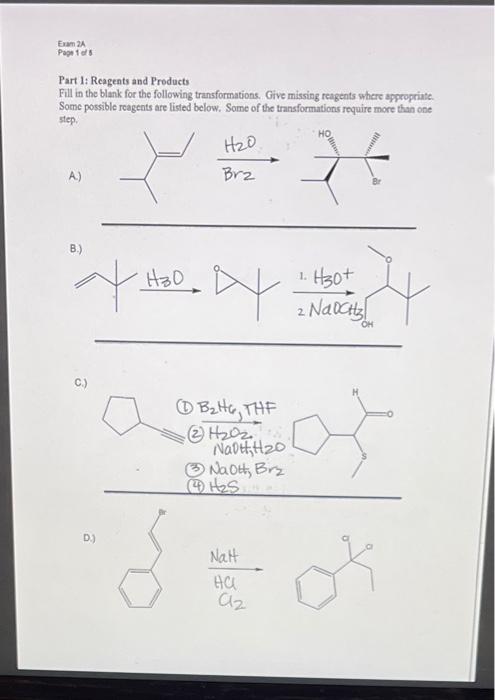 Exam 2A
Page 1 of 8
Part 1: Reagents and Products
Fill in the blank for the following transformations. Give missing reagents where appropriate.
Some possible reagents are listed below. Some of the transformations require more than one
step.
A.)
H2O
Br2
HO
Br
B.)
H3O
1. H3O+
2 NaOCH3
O
OH
C.)
① B2H6, THF
② H2O2
NaOH, H2O
③ NaOH, Br2
④ H2S
H
O
S
D.)
Br
NaH
HCl
Cl2
Cl
Cl